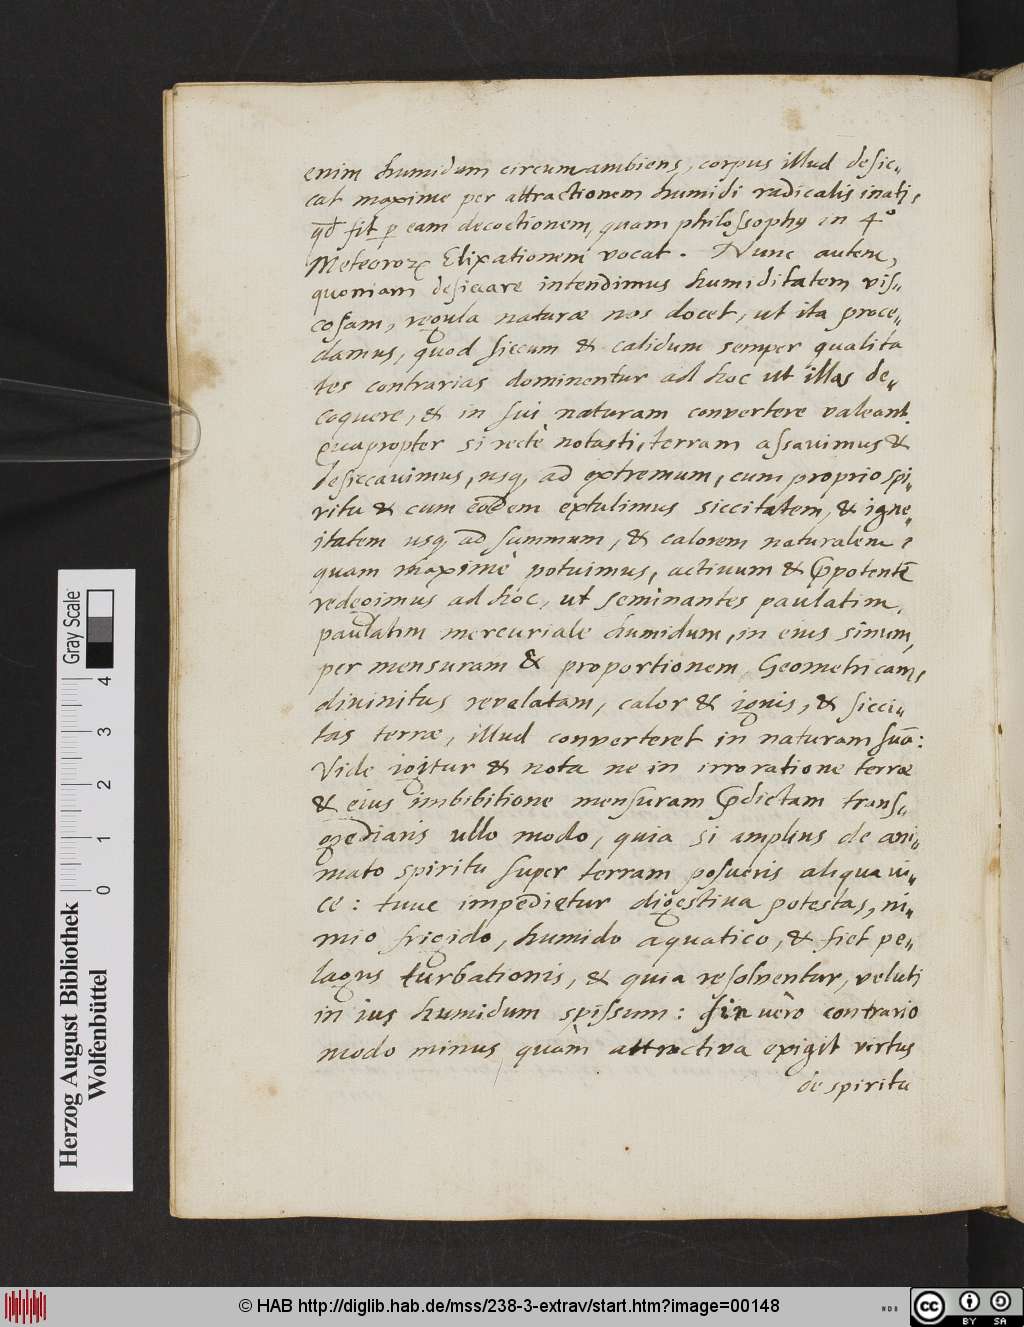 enim humidum circumambiens, corpus illud desic„
cat maxime per attractionem humidi radicalis inati,
qđ fit ꝑ eam decoctionem, quam philosophꝯ in 4°
Meteoroꝝ Elixationem vocat. Nunc autem,
quoniam desiccare intendimus humiditatem vis„
cosam, regula naturæ nos docet, ut ita proce„
damus, quod siccum & calidum semper qualita
tes contrarias dominentur ad hoc ut illas de„
coquere, & in sui naturam convertere valeant.
Quapropter si rectè notasti, terram assavimus &
desiccavimus, usqꝫ ad extremum, cum proprio spi„
ritu & cum eodem extulimus siccitatem, & igne„
itatem usqꝫ ad summum, & calorem naturalem
quam maximè potuimus, activum & p̃potentē
redegimus ad hoc, ut seminantes paulatim,
paulatim mercuriale humidum, in eius sinum,
per mensuram & proportionem Geometricam,
divinitus revelatam, calor & ignis, & sicci„
tas terræ, illud converteret in naturam suā:
Vide igitur & nota ne in irroratione terræ
& eius imbibitione mensuram p̃dictam trans„
grediaris ullo modo, quia si amplius de ani„
mato spiritu super terram posueris aliqua vi„
ce: tunc impedietur digestiva potestas, ni„
mio frigido, humido aquatico, & fiet pe„
lagus turbationis, & quia resolventur, veluti
in ius humidum spissum: sin vèro contrario
modo minus quàm attractiva exigit virtus
de spiritu
Gray Scale
0 1 2 3 4
Herzog August Bibliothek
Wolfenbüttel
© HAB http://diglib.hab.de/mss/238-3-extrav/start.htm?image=00148
cc BY SA